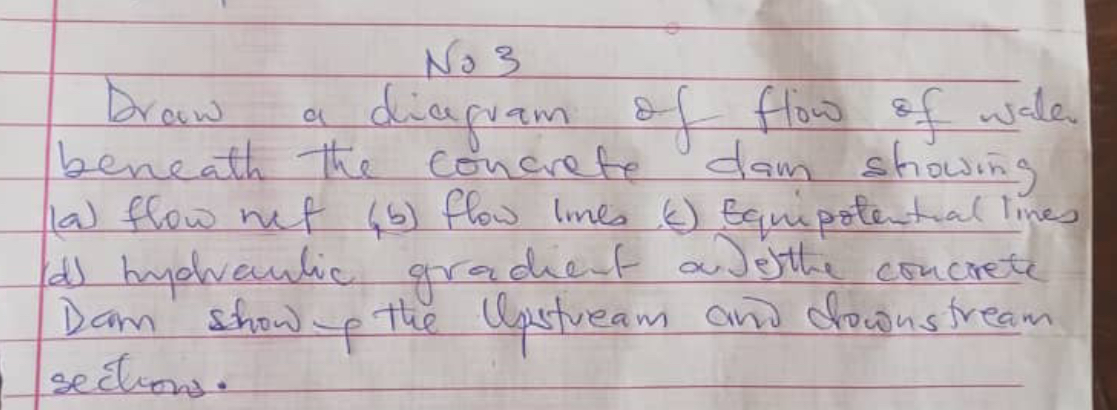 No 3
Draw a diagram of flow of water
beneath the concrete dam showing
(a) flow net (b) flow lines (c) Equipotential lines
(d) hydraulic gradient and (e) the concrete
Dam showing the Upstream and downstream
sections.